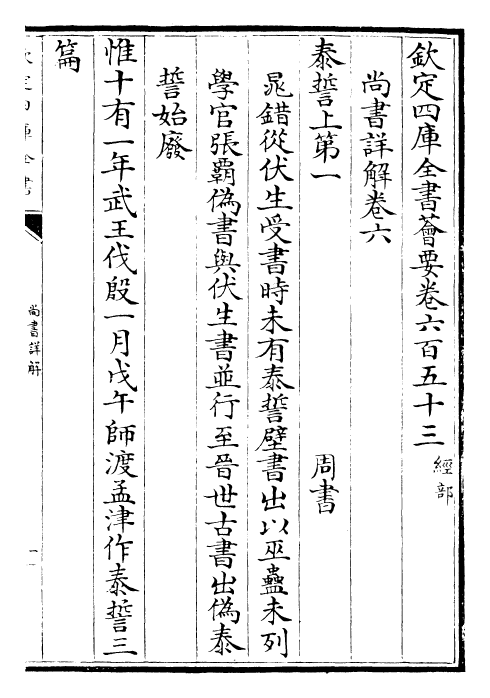 欽定四庫全書薈要卷六百五十三 經部
尚書詳解卷六
泰誓上第一 周書
鼂錯從伏生受書時未有泰誓壁書出以巫蠱未列
學官張霸偽書與伏生書並行至晉世古書出偽泰
誓始廢
惟十有一年武王伐殷一月戊午師渡孟津作泰誓三
篇
尚書詳解
一